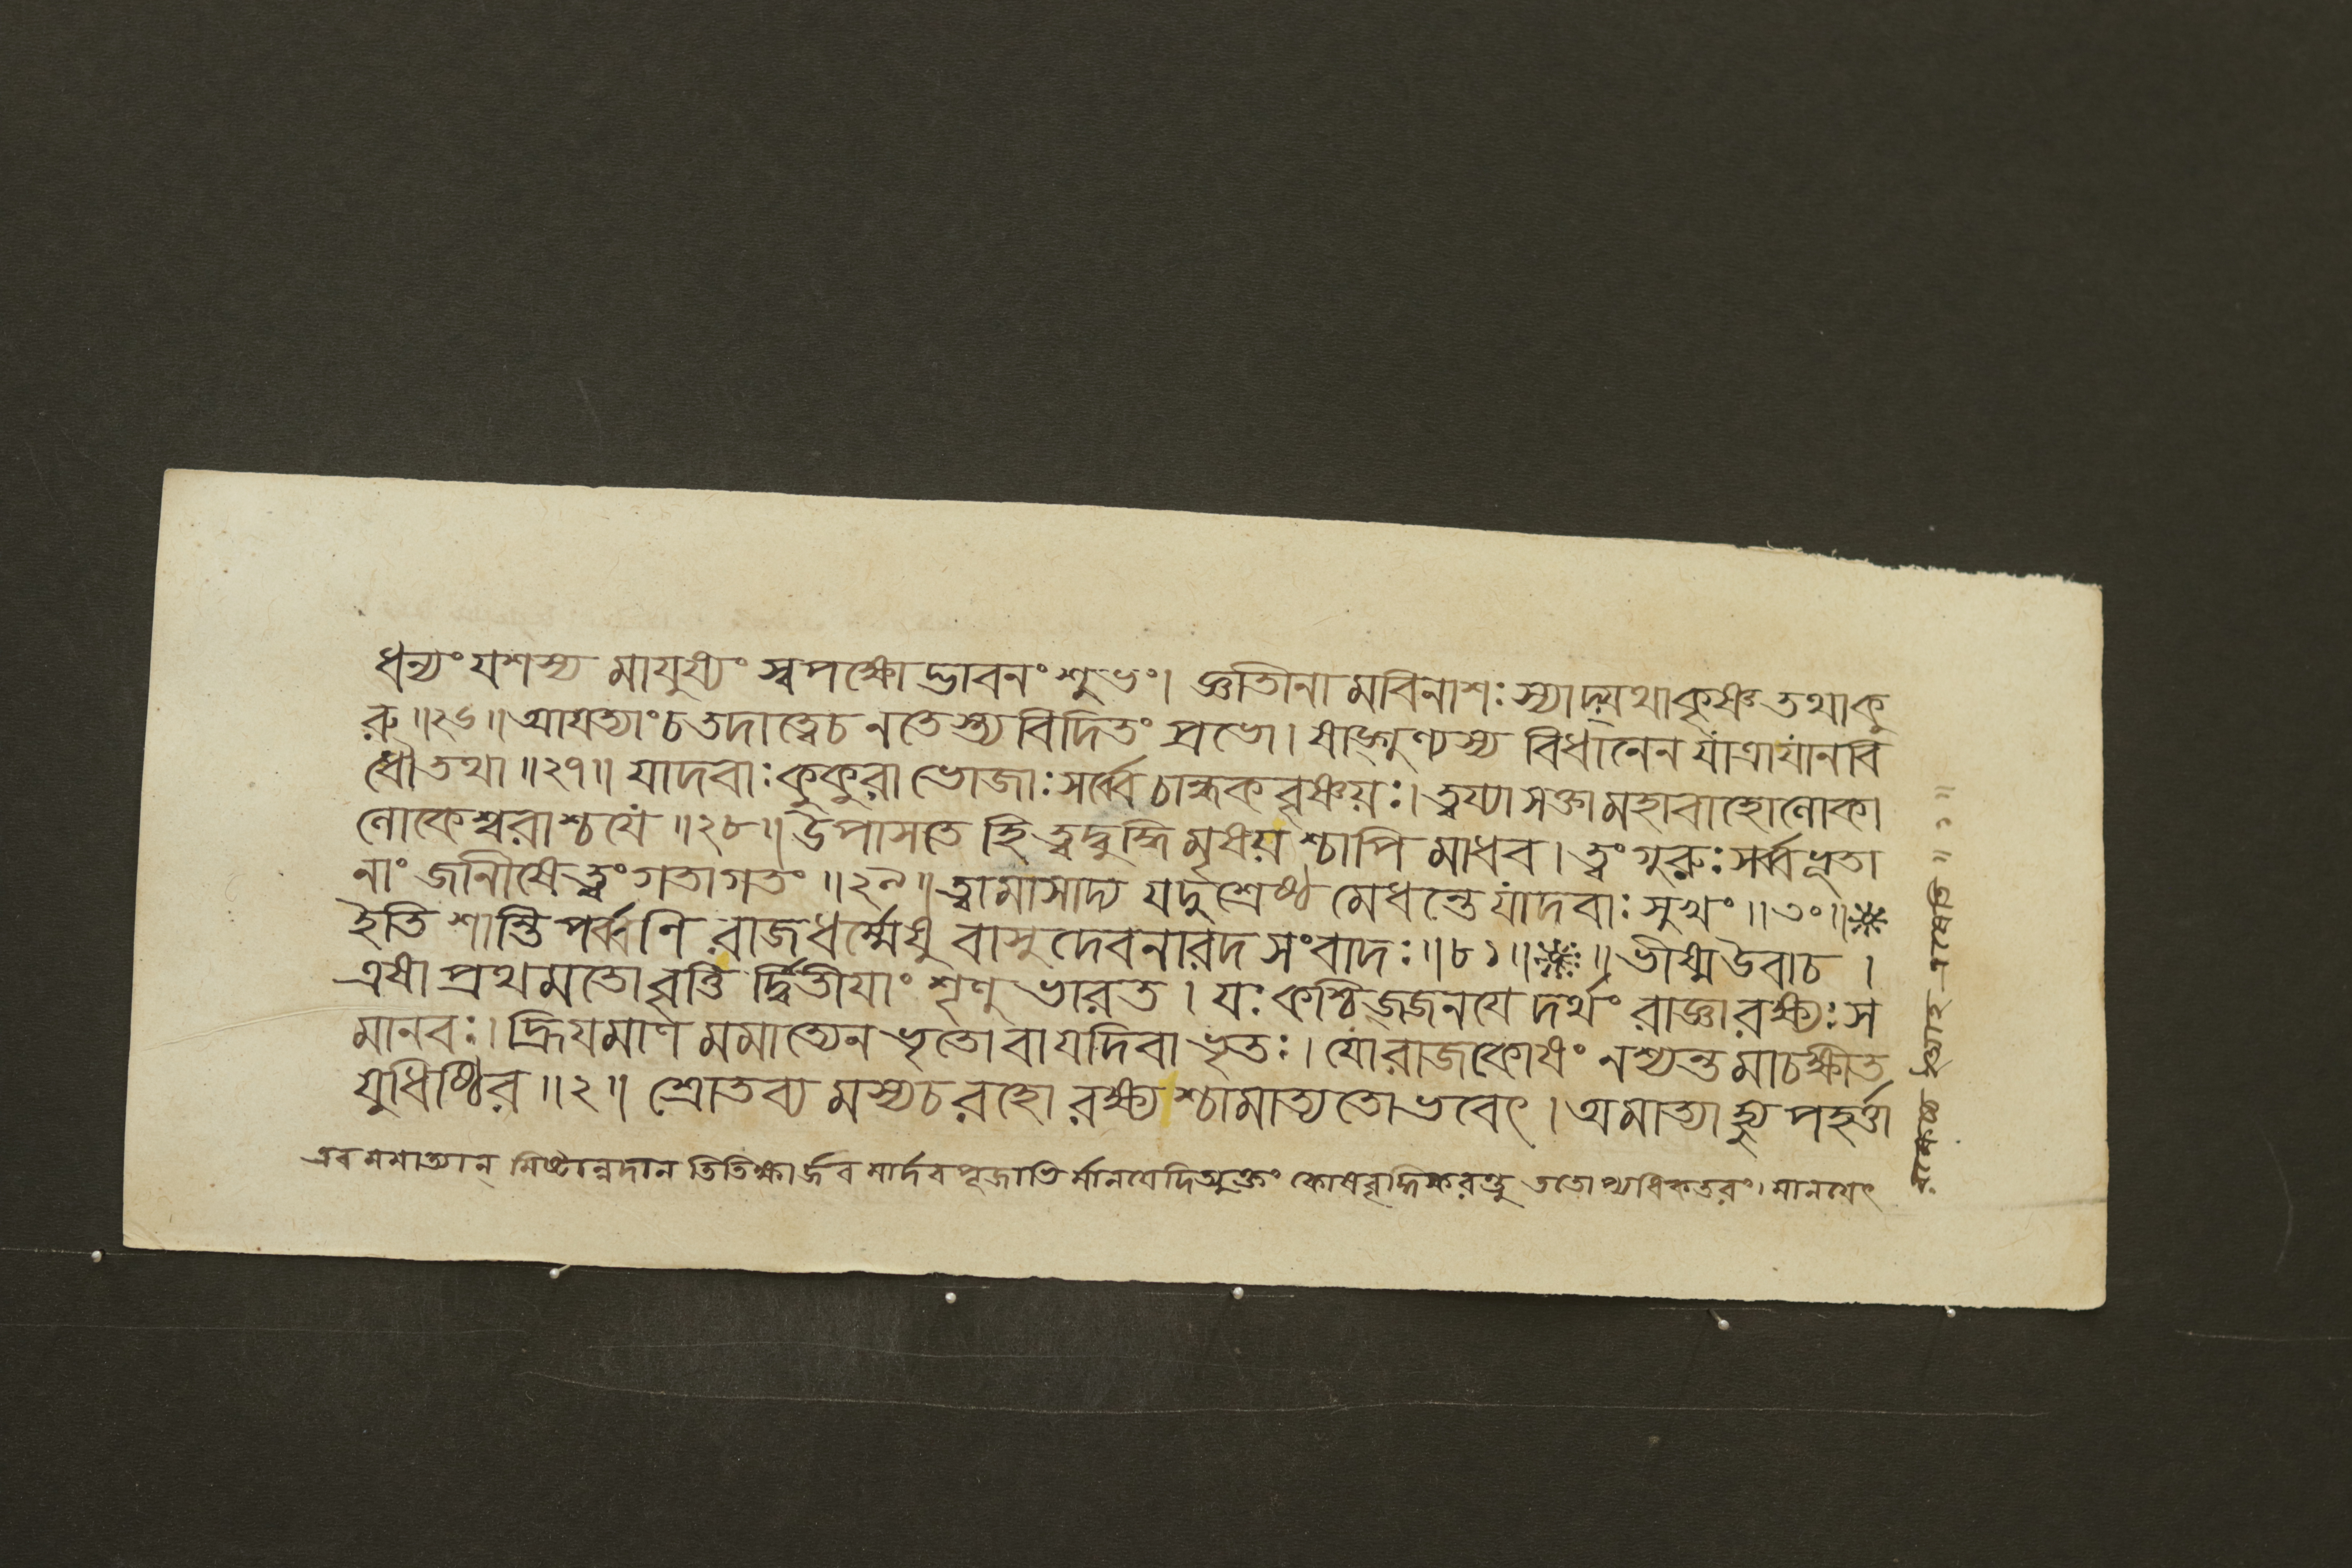 ধন্যং যশস্য মাযুষ্যং স্বপক্ষোদ্ভাবনং শুভং। জ্ঞাতীনামবিনাশঃ স্যাদ্যথাকৃষ্ণ তথাকু
রু॥২৬॥আয়ত্যাংচতদাত্বেচ নতেস্ত্যবিদিতং প্রভো। ষাড্গুণ্যস্য বিধানেন যাত্রাযানবি
ধৌতথা॥২৭॥ যাদবাঃ কুকুরা ভোজাঃ সর্ব্বেচান্ধকবৃষ্ণয়ঃ।ত্বয্যাসক্তামহাবাহোলোকা
লোকেশ্বরাশ্চযে॥২৮॥উপাসতে হি ত্বদ্বুদ্ধিমৃষয়শ্চাপি মাধব। ত্বংগুরুঃসর্ব্বভূতা
নাং জানীষেত্বং গতাগতং॥২৯॥ত্বামাসাদ্য যদুশ্রেষ্ঠ মেধন্তে যাদবাঃ সুখং॥৩০॥
ইতি শান্তিপর্ব্বণি রাজধর্ম্মেষু বাসুদেবনারদ সংবাদঃ॥৮১॥ ॥ভীষ্মউবাচ।
এষা প্রথমতো বৃত্তি র্দ্বিতীয়াং শৃণু ভারত। যঃকশ্চিজ্জনযেদর্থং রাজ্ঞারক্ষ্যঃস
মানবঃ।হ্রিযমাণমমাত্যেন ভৃতোবাযদিবাভৃতঃ।যোরাজকোষং নশ্যন্তমাচক্ষীত
যুধিষ্ঠির॥২॥ শ্রোতব্য মস্যচরহো রক্ষ্যশ্চামাত্যতোভবেৎ। অমাত্যাহ্যু পহর্ত্তা
এবমমাত্যান্ মিষ্টান্নদান তিতিক্ষার্জব মার্দবপূজাভি র্মানযেদিত্যুক্তং কোষবৃদ্ধিকরন্তু ততোপ্যধিকতরং।মানযেৎ
এষেতি॥১॥